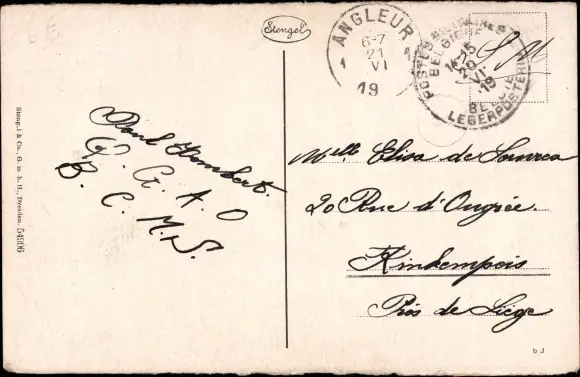 Stengel
ANGLEUR
6-7
21
VI
19
1
1
POSTES MILITAIRES
BELGIQUE
14-15
20
VI
19
BELGIE
LEGERPOSTERIJ
S. M.
Paul Humbert.
Q. G. A. O
B. C. M. S.
Melle Elisa de
20 Rue d'Ougrée.
Kinkempois
Près de Liège
Stengel & Co., G. m. b. H., Dresden. 54006
b J